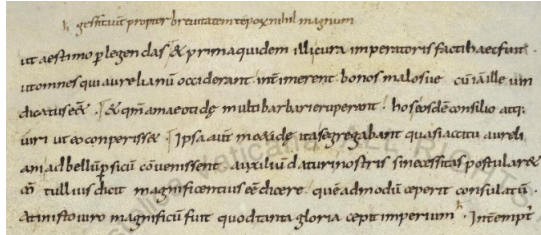 h gestavit propter brevitatem tēpoꝝ nihil magnum
ut aestimo p̱legendas & prima quidem illi cura imperatoris facti haec fuit
ut omnes qui aurelianū occiderant intēimerent bonos malosue cū iā ille uin
dicatus eēt · & qm̄ a maeotide multi barbari eruperant · hos eosdē consilio atq;
uiri ut eo conperisse · Ipsa aut maeotide ita se gregabant quasi accitu aureli
ani ad bellū ꝑsicū cōuenissent auxiliū daturi nostris si necessitas postularet
m̄ tullius dicit magnificentius eē dicere quēadmodū ceperit consulatū
at in isto uiro magnificū fuit quod tanta gloria cepit imperium h · Intēempt
ALL RIGHTS